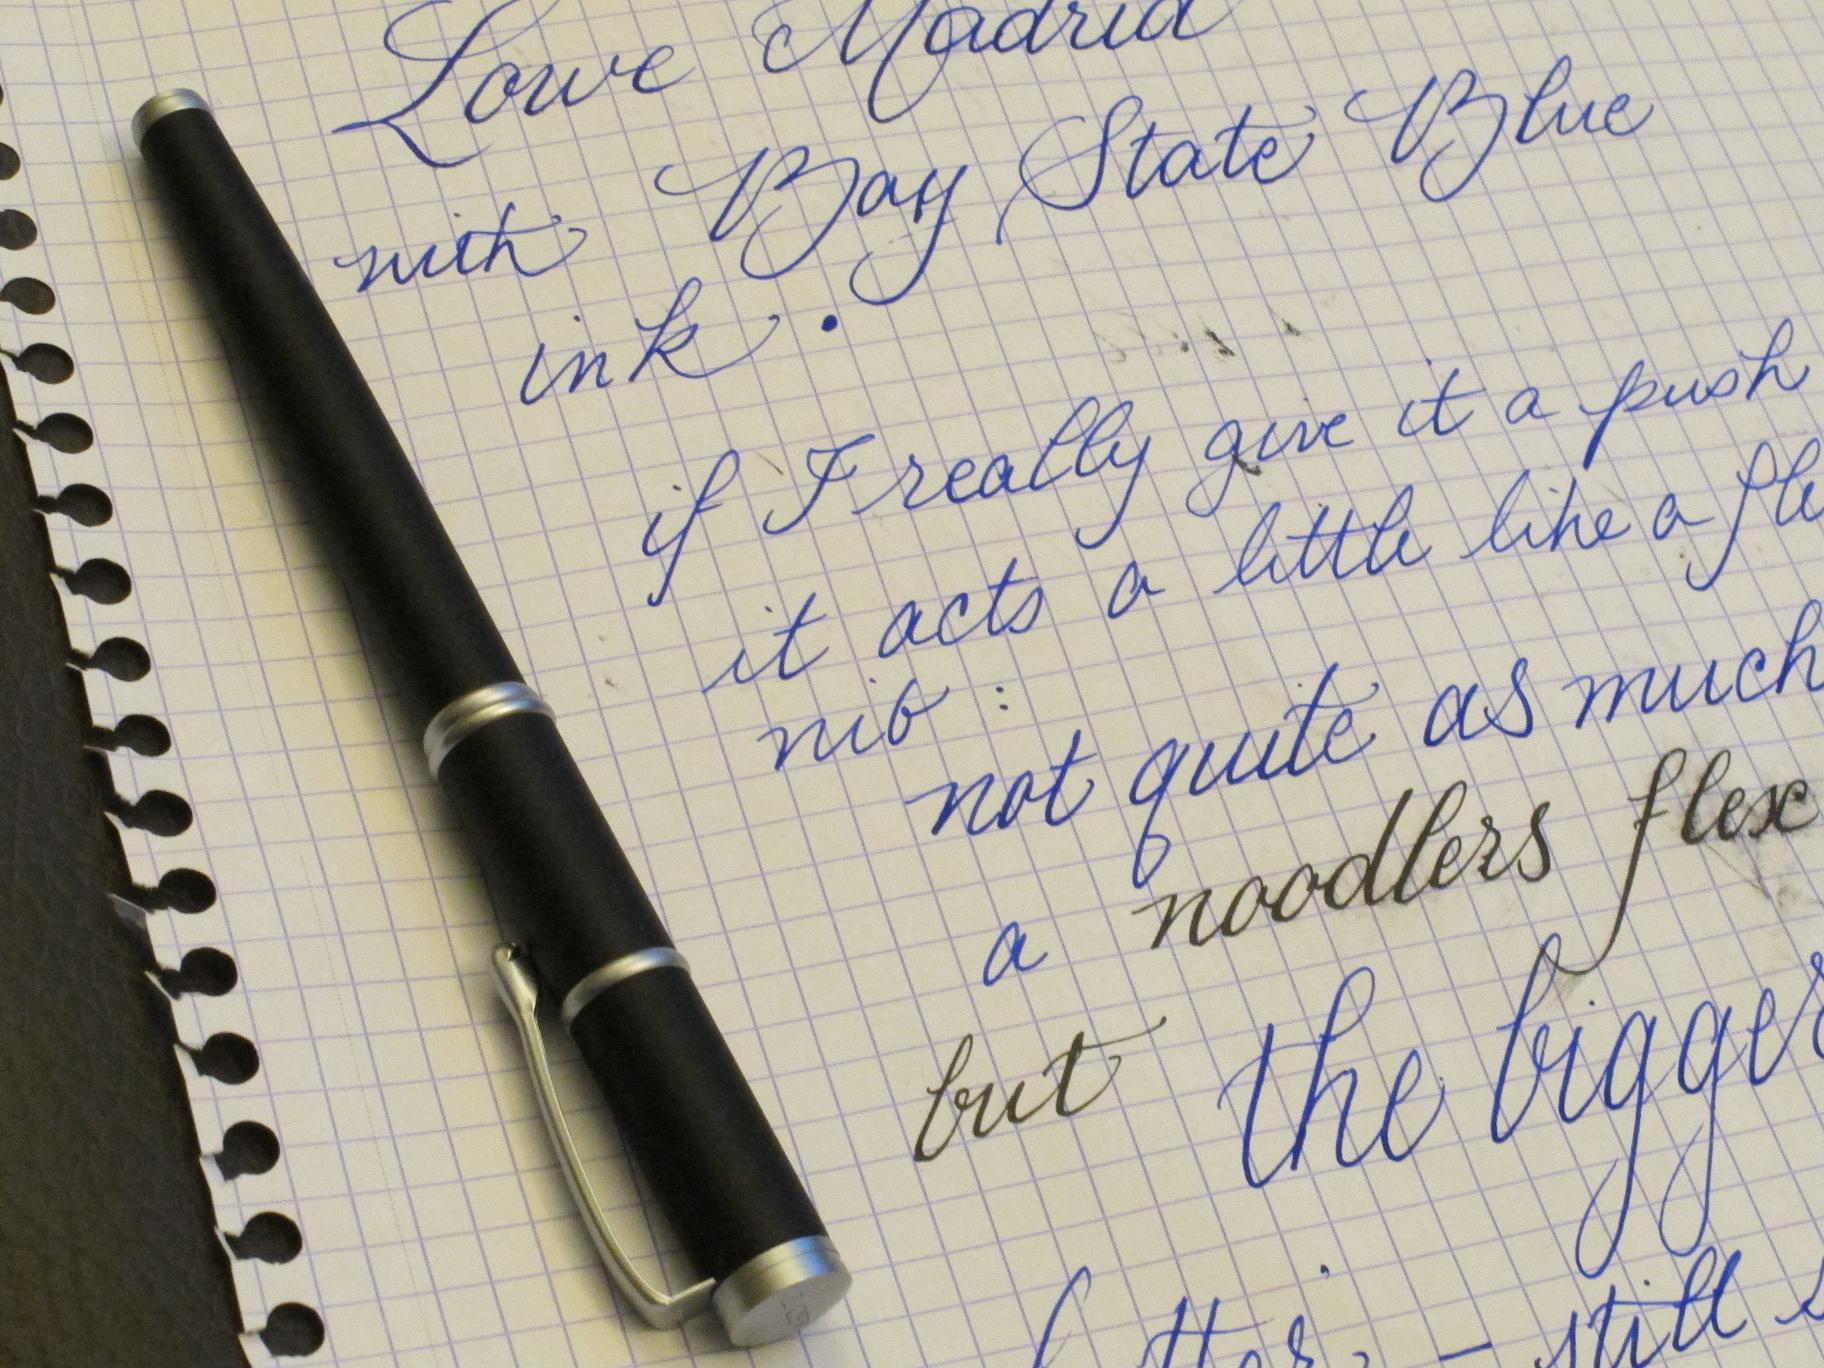 Lowe Madrid
with Bay State Blue
ink.
if I really give it a push
it acts a little like a fle
nib:
not quite as much
a noodlers flex
but the bigger
letters - still